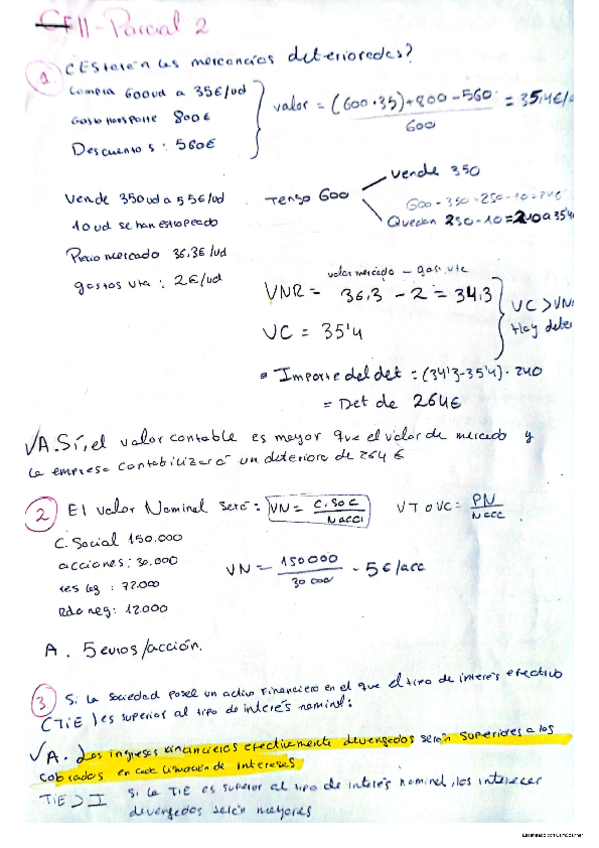 CFII - Parcial 2
1 ¿Estarán las mercancías deterioradas?
Compra 600ud a 35€/ud
valor = (600·35)+800-560 / 600 = 35,4€/
Gasto transporte 800€
Descuento s : 560€
Vende 350ud a 55€/ud
Tengo 600
vende 350
10 ud se han estropeado
600-350-250-10=240
Quedan 250-10=240 a 35'4
Precio mercado 36.3€/ud
gastos vta : 2€/ud
valor mercado - gast. vta
VNR = 36,3 - 2 = 34,3
VC = 35'4
VC > VN
Hay deter
Importe del det = (34'3-35'4)·240
= Det de 264€
√A. Sí, el valor contable es mayor que el valor de mercado y
la empresa contabilizará un deterioro de 264 €
2 El valor Nominal será: VN = C. Soc / Nacci
VT o VC = PN / Nacc
C. Social 150.000
acciones: 30.000
res leg : 72.000
Rdo neg: 12.000
VN = 150000 / 30000 - 5€/acc
A. 5 euros/acción.
3 Si la sociedad posee un activo financiero en el que el tipo de interés efectivo
(TIE) es superior al tipo de interés nominal:
√A. Los ingresos financieros efectivamente devengados serán superiores a los
cobrados en cada liquidación de intereses
TIE > I
Si la TIE es superior al tipo de interés nominal, los intereses
devengados serán mayores